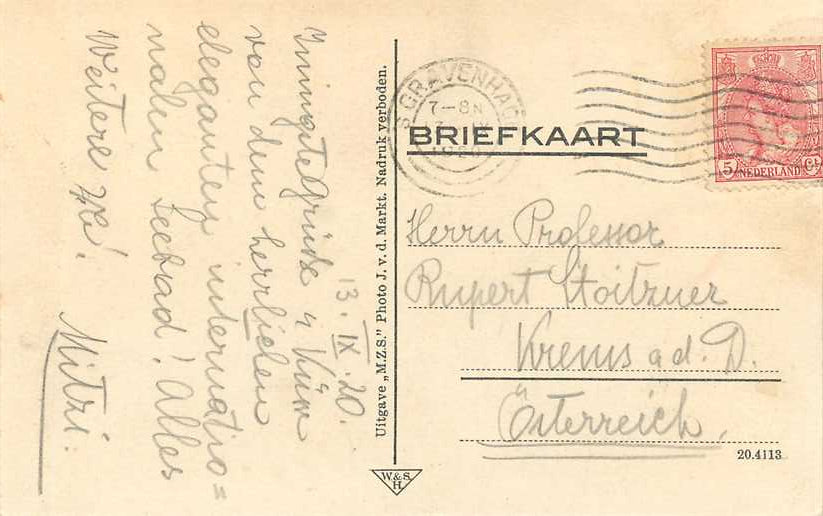 13. IX. 20.
Innigste Grüße u Küsse
von dem herrlichen
eleganten internatio=
nalen Seebad! Alles
Weitere
Mitzi.
Uitgave „M.Z.S." Photo J. v. d. Markt. Nadruk verboden.
W.&S.
H.
'S GRAVENHAGE
7-8N
BRIEFKAART
5 NEDERLAND Ct
Herrn Professor
Rupert Stoitzner
Krems a. d. D.
Österreich.
20.4113